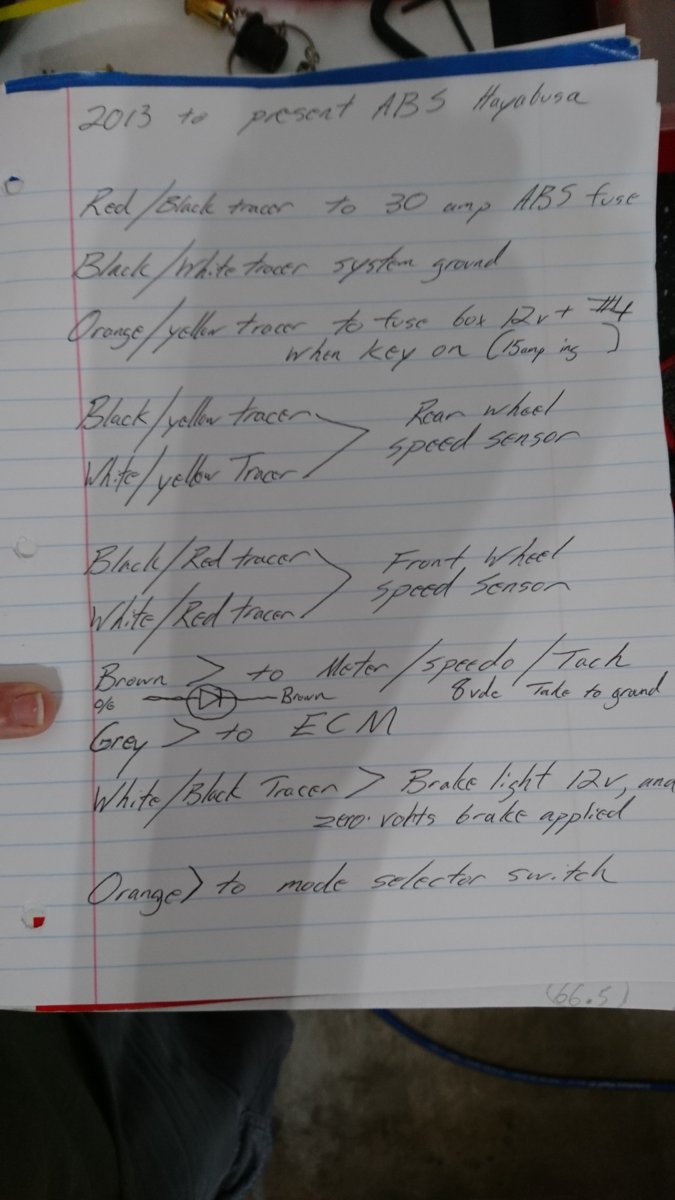 2013 to present ABS Hayabusa
Red/Black tracer to 30 amp ABS fuse
Black/White tracer system ground
Orange/yellow tracer to fuse box 12v+ #4
when key on (15amp ing)
Black/yellow tracer
Rear wheel
speed sensor
White/yellow Tracer
Black/Red tracer
Front Wheel
speed Sensor
White/Red tracer
Brown > to Meter/speedo/Tach
Brown 8vdc Take to grand
Grey > to ECM
White/Black Tracer > Brake light 12v, and
zero volts brake applied
Orange> to mode selector switch
(66.5)